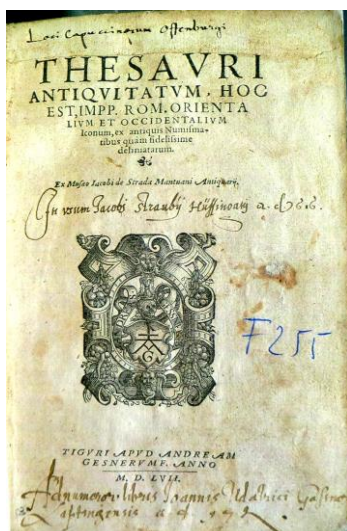 Loci Capuccinorum Offenburgi
THESAVRI
ANTIQVITATVM, HOC
EST, IMPP. ROM. ORIENTA
LIVM ET OCCIDENTALIVM
Iconum, ex antiquis Numisma-
tibus quàm fidelissime
deliniatarum.
Ex Museo Iacobi de Strada Mantuani Antiquarij.
In usum Jacobi
G
F255
TIGVRI APVD ANDREAM
GESNERVM F. ANNO
M. D. LVII.
Adnumeror libris Joannis Udalrici